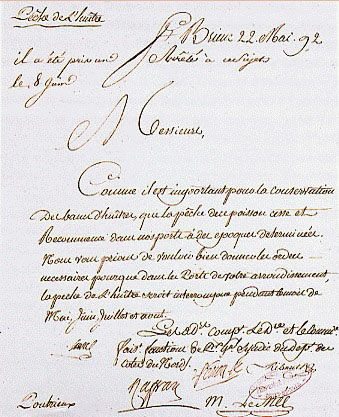 Pêche de l'huître
St Brieuc 22. Mai. 92
il a été pris un
Arrêté à ce sujet
le 8 Juin
Messieurs,
Comme il est important pour la conservation
Des bancs d'huîtres, que la pêche de ce poisson cesse et
Recommence dans nos ports à des époques déterminées.
Nous vous prions de vouloir bien donner les ordres
nécessaires pour que dans les Ports de votre arrondissement,
la pêche de l'huître soit interrompue pendant les mois de
Mai, Juin, Juillet et aout.
Les ad. comp. le D. et le
fais. fonctions de du dép. des
côtes du Nord.
Le Mée
Pontrieux